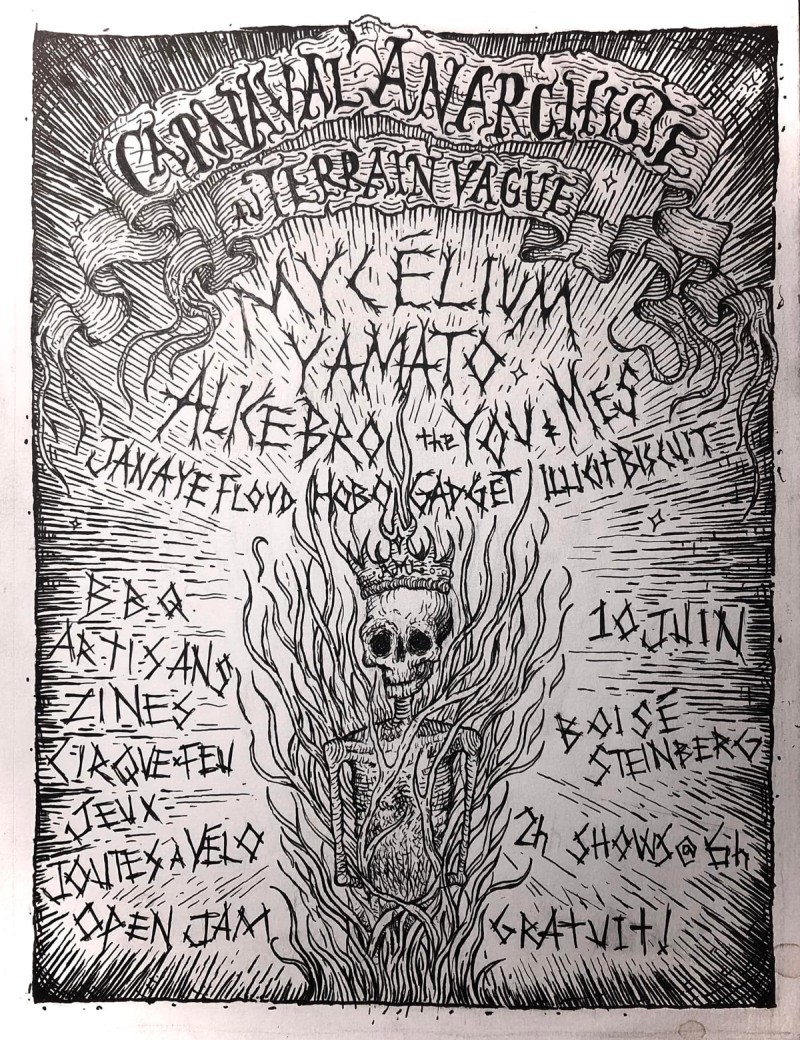 CARNAVAL ANARCHISTE
AU TERRAIN VAGUE
MYCÉLIUM
YAMATO
ALICEBRO the YOU & MES
JANAYE FLOYD HOBO GADGET ILLICIT BISCUIT
BBQ
ARTISANS
ZINES
CIRQUE × FEU
JEUX
JOUTES À VÉLO
OPEN JAM
10 JUIN
BOISÉ
STEINBERG
2h SHOWS @ 6h
GRATUIT!